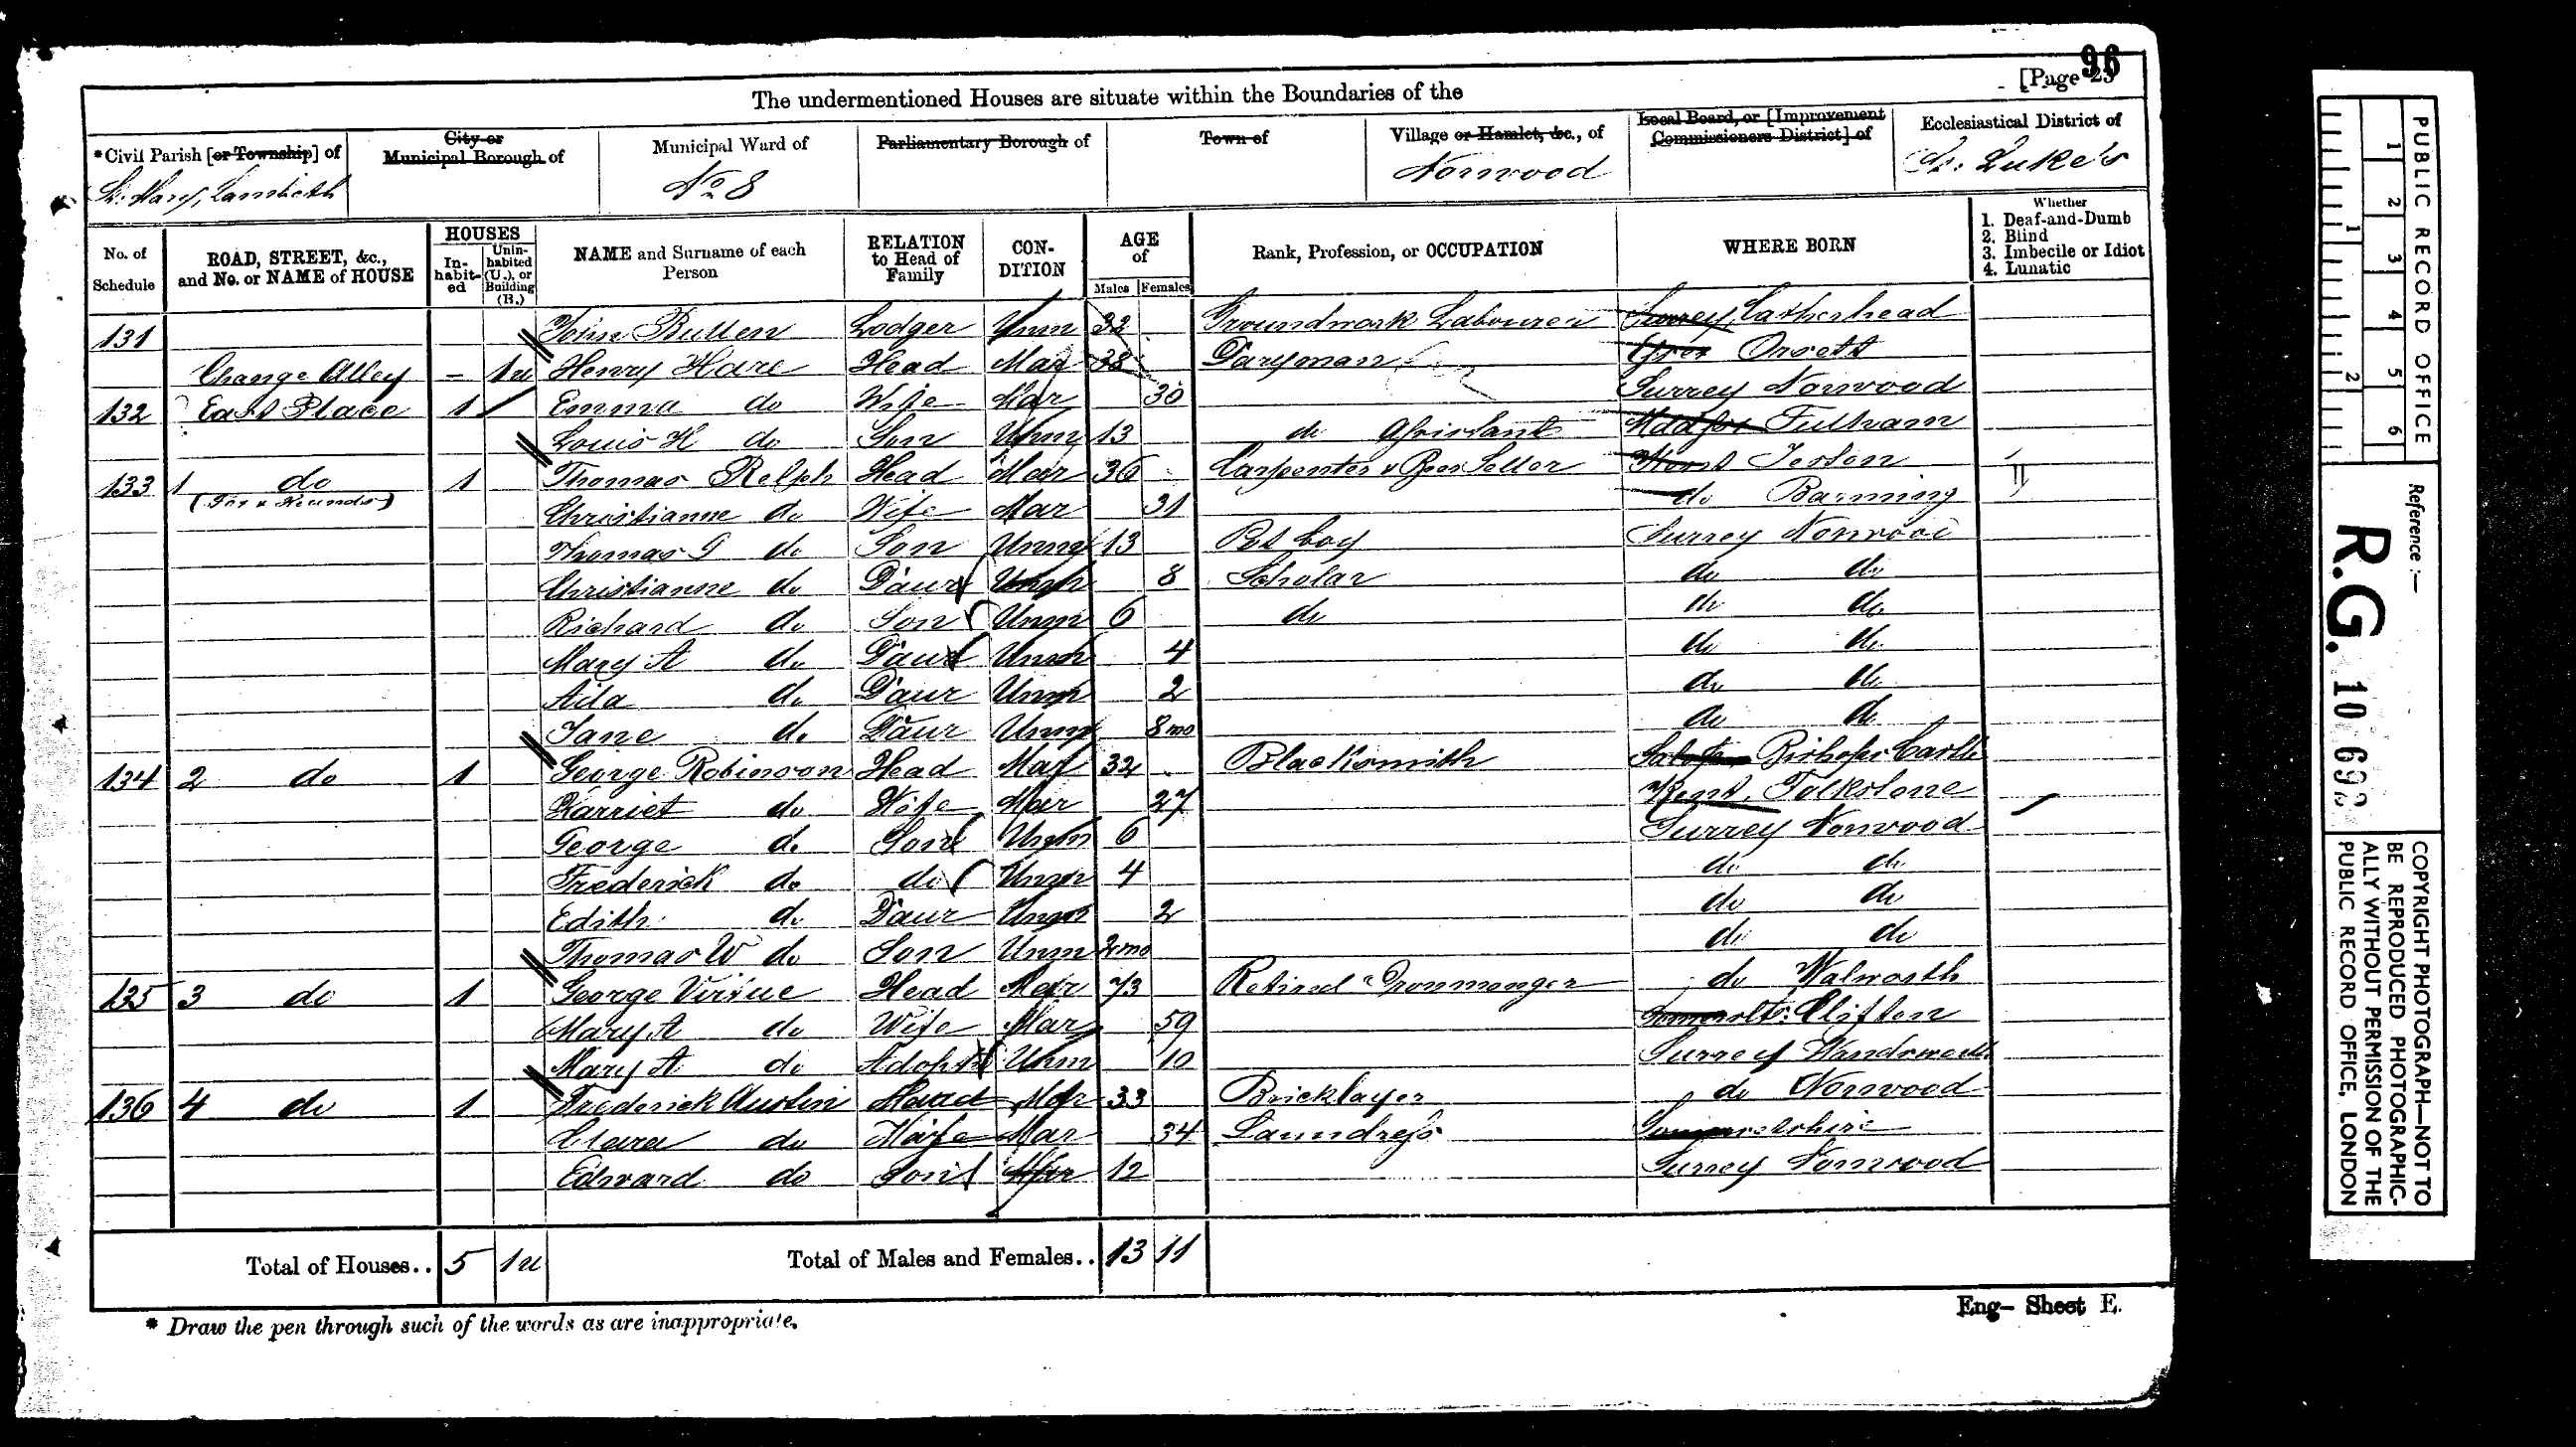 96
[Page 23
The undermentioned Houses are situate within the Boundaries of the
*Civil Parish [or Township] of
City or Municipal Borough of
Municipal Ward of
Parliamentary Borough of
Town of
Village or Hamlet, &c., of
Local Board, or [Improvement Commissioners District] of
Ecclesiastical District of
St. Mary, Lambeth
No 8
Norwood
St. Luke's
No. of Schedule
ROAD, STREET, &c., and No. or NAME of HOUSE
HOUSES
In-habit-ed
Unin-habited (U.), or Building (B.)
NAME and Surname of each Person
RELATION to Head of Family
CON-DITION
AGE of
Males
Females
Rank, Profession, or OCCUPATION
WHERE BORN
Whether
1. Deaf-and-Dumb
2. Blind
3. Imbecile or Idiot
4. Lunatic
131 John Bullen Lodger Unm 32 Groundwork Labourer Surrey, Leatherhead
Change Alley – 1u Henry Hare Head Mar 38 Daryman Essex Orsett
132 East Place 1 Emma do Wife Mar 30 Surrey Norwood
Louis H do Son Unm 13 do Assistant Middx Fulham
133 1 do 1 Thomas Relph Head Mar 36 Carpenter & Beer Seller Kent Teston
(Fox & Hounds) Christianne do Wife Mar 31 do Barming
Thomas G do Son Unm 13 Pot boy Surrey Norwood
Christianne do Daur Unm 8 Scholar do do
Richard do Son Unm 6 do do do
Mary A do Daur Unm 4 do do
Ada do Daur Unm 2 do do
Jane do Daur Unm 8mo do do
134 2 do 1 George Robinson Head Mar 32 Blacksmith Salop Bishops Castle
Harriet do Wife Mar 27 Kent, Folkstone
George do Son Unm 6 Surrey Norwood
Frederick do do Unm 4 do do
Edith do Daur Unm 2 do do
Thomas W do Son Unm 2mo do do
135 3 do 1 George Virtue Head Mar 73 Retired Ironmonger do Walworth
Mary A do Wife Mar 59 Somerset Clifton
Mary A do Adopted Unm 10 Surrey Wandsworth
136 4 do 1 Frederick Austin Head Mar 33 Bricklayer do Norwood
Clara do Wife Mar 34 Laundress Somersetshire
Edward do Son 12 Surrey Norwood
Total of Houses.. 5 1u Total of Males and Females.. 13 11
* Draw the pen through such of the words as are inappropriate.
Eng– Sheet E.
PUBLIC RECORD OFFICE
1 2 3 4 5 6
1 2
Reference:—
R.G. 10 692
COPYRIGHT PHOTOGRAPH—NOT TO
BE REPRODUCED PHOTOGRAPHIC-
ALLY WITHOUT PERMISSION OF THE
PUBLIC RECORD OFFICE, LONDON